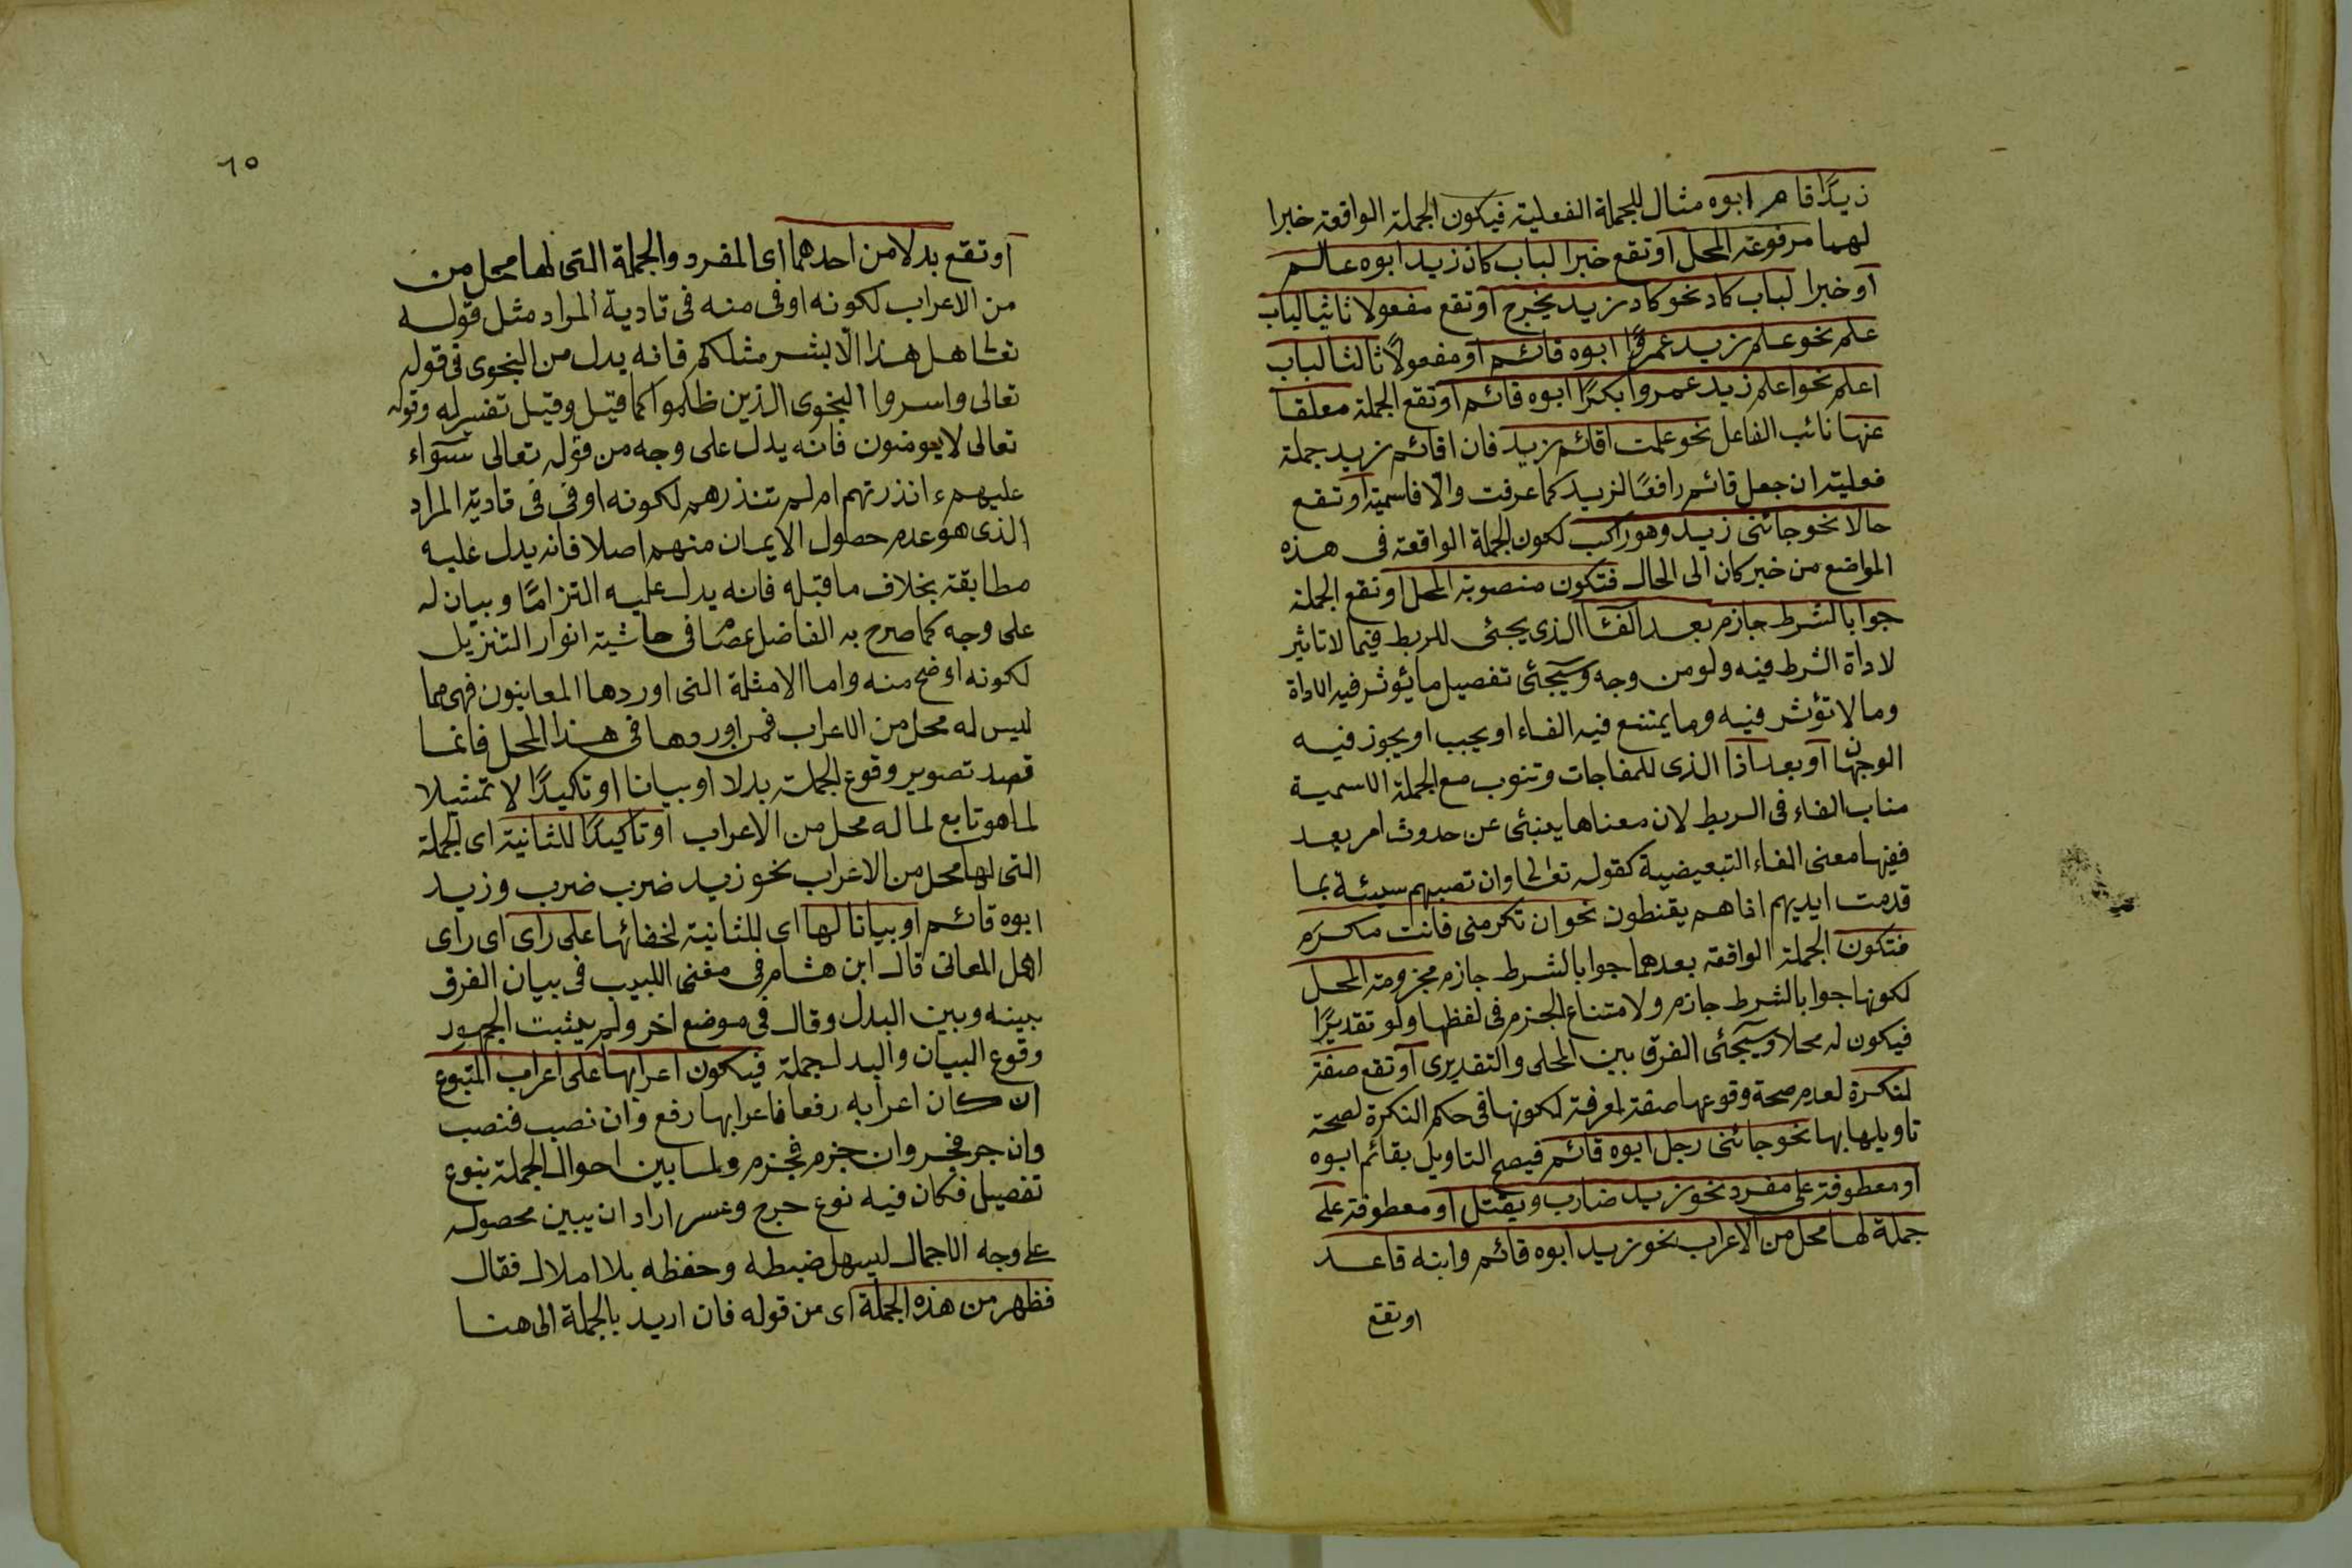 زيدًا قام ابوه مثال للجملة الفعلية فيكون الجملة الواقعة خبرا
لهما مرفوعة المحل او تقع خبرا لباب كان زيد ابوه عالم
او خبرا لباب كاد نحو كاد زيد يخرج او تقع مفعولا ثانيا لباب
علم نحو علم زيد عمروًا ابوه قائم او مفعولًا ثالثا لباب
اعلم نحو اعلم زيد عمروا بكرًا ابوه قائم او تقع الجملة معلقا
عنها نائب الفاعل نحو علمت اقائم زيد فان اقائم زيد جملة
فعلية ان جعل قائم رافعًا لزيد كما عرفت والّا فاسمية او تقع
حالا نحو جائنى زيد وهو راكب لكون الجملة الواقعة فى هذه
المواضع من خبر كان الى الحال فتكون منصوبة المحل او تقع الجملة
جوابا لشرط جازم بعد الفا الذى يجئى للربط فيما لا تاثير
لاداة الشرط فيه ولو من وجه وسيجئى تفصيل ما يؤثر فيه الاداة
وما لا تؤثر فيه وما يمتنع فيه الفاء او يجب او يجوز فيه
الوجهان او بعد اذا الذى للمفاجات وتنوب مع الجملة الاسمية
مناب الفاء فى الربط لان معناها ينبئى عن حدوث امر بعد
ففيها معنى الفاء التبعيضية كقوله تعالى وان تصبهم سيئة بما
قدمت ايديهم اذا هم يقنطون نحو ان تكرمنى فانت مكرم
فتكون الجملة الواقعة بعدهما جوابا لشرط جازم مجزومة المحل
لكونها جوابا لشرط جازم ولامتناع الجزم فى لفظها ولو تقديرًا
فيكون له محلا وسيجئى الفرق بين المحلى والتقديرى او تقع صفة
لنكرة لعدم صحة وقوعها صفة لمعرفة لكونها فى حكم النكرة لصحة
تاويلها بها نحو جائنى رجل ابوه قائم فيصح التاويل بقائم ابوه
او معطوفة على مفرد نحو زيد ضارب ويقتل او معطوفة على
جملة لها محل من الاعراب نحو زيد ابوه قائم وابنه قاعد
او تقع
٦٥
او تقع بدلا من احدهما اى المفرد والجملة التى لها محل من
من الاعراب لكونه اوفى منه فى تادية المراد مثل قوله
تعالى هل هذا الّا بشر مثلكم فانه بدل من النجوى فى قوله
تعالى واسروا النجوى الذين ظلموا كما قيل وقيل تفسير له وقوله
تعالى لا يومنون فانه يدل على وجه من قوله تعالى سواء
عليهم ءانذرتهم ام لم تنذرهم لكونه اوفى فى تادية المراد
الذى هو عدم حصول الايمان منهم اصلا فانه يدل عليه
مطابقة بخلاف ما قبله فانه يدل عليه التزامًا وبيان له
على وجه كما صرح به الفاضل عصام فى حاشية انوار التنزيل
لكونه اوضح منه واما الامثلة التى اوردها المعانيون فهى مما
ليس له محل من الاعراب فمن اوردها فى هذا المحل فانما
قصد تصوير وقوع الجملة بدلا او بيانا او تاكيدًا لا تمثيلا
لما هو تابع لما له محل من الاعراب او تاكيدًا للثانية اى الجملة
التى لها محل من الاعراب نحو زيد ضرب ضرب وزيد
ابوه قائم او بيانا لها اى للثانية لخفائها على راى اى راى
اهل المعانى قال ابن هشام فى مغنى اللبيب فى بيان الفرق
بينه وبين البدل وقال فى موضع اخر ولم يثبت الجمهور
وقوع البيان والبدل جملة فيكون اعرابها على اعراب المتبوع
ان كان اعرابه رفعا فاعرابها رفع وان نصب فنصب
وان جر فجر وان جزم فجزم ولما بين احوال الجملة بنوع
تفصيل فكان فيه نوع حرج وعسر اراد ان يبين محصوله
على وجه الاجمال ليسهل ضبطه وحفظه بلا املال فقال
فظهر من هذه الجملة اى من قوله فان اريد بالجملة الى هنا